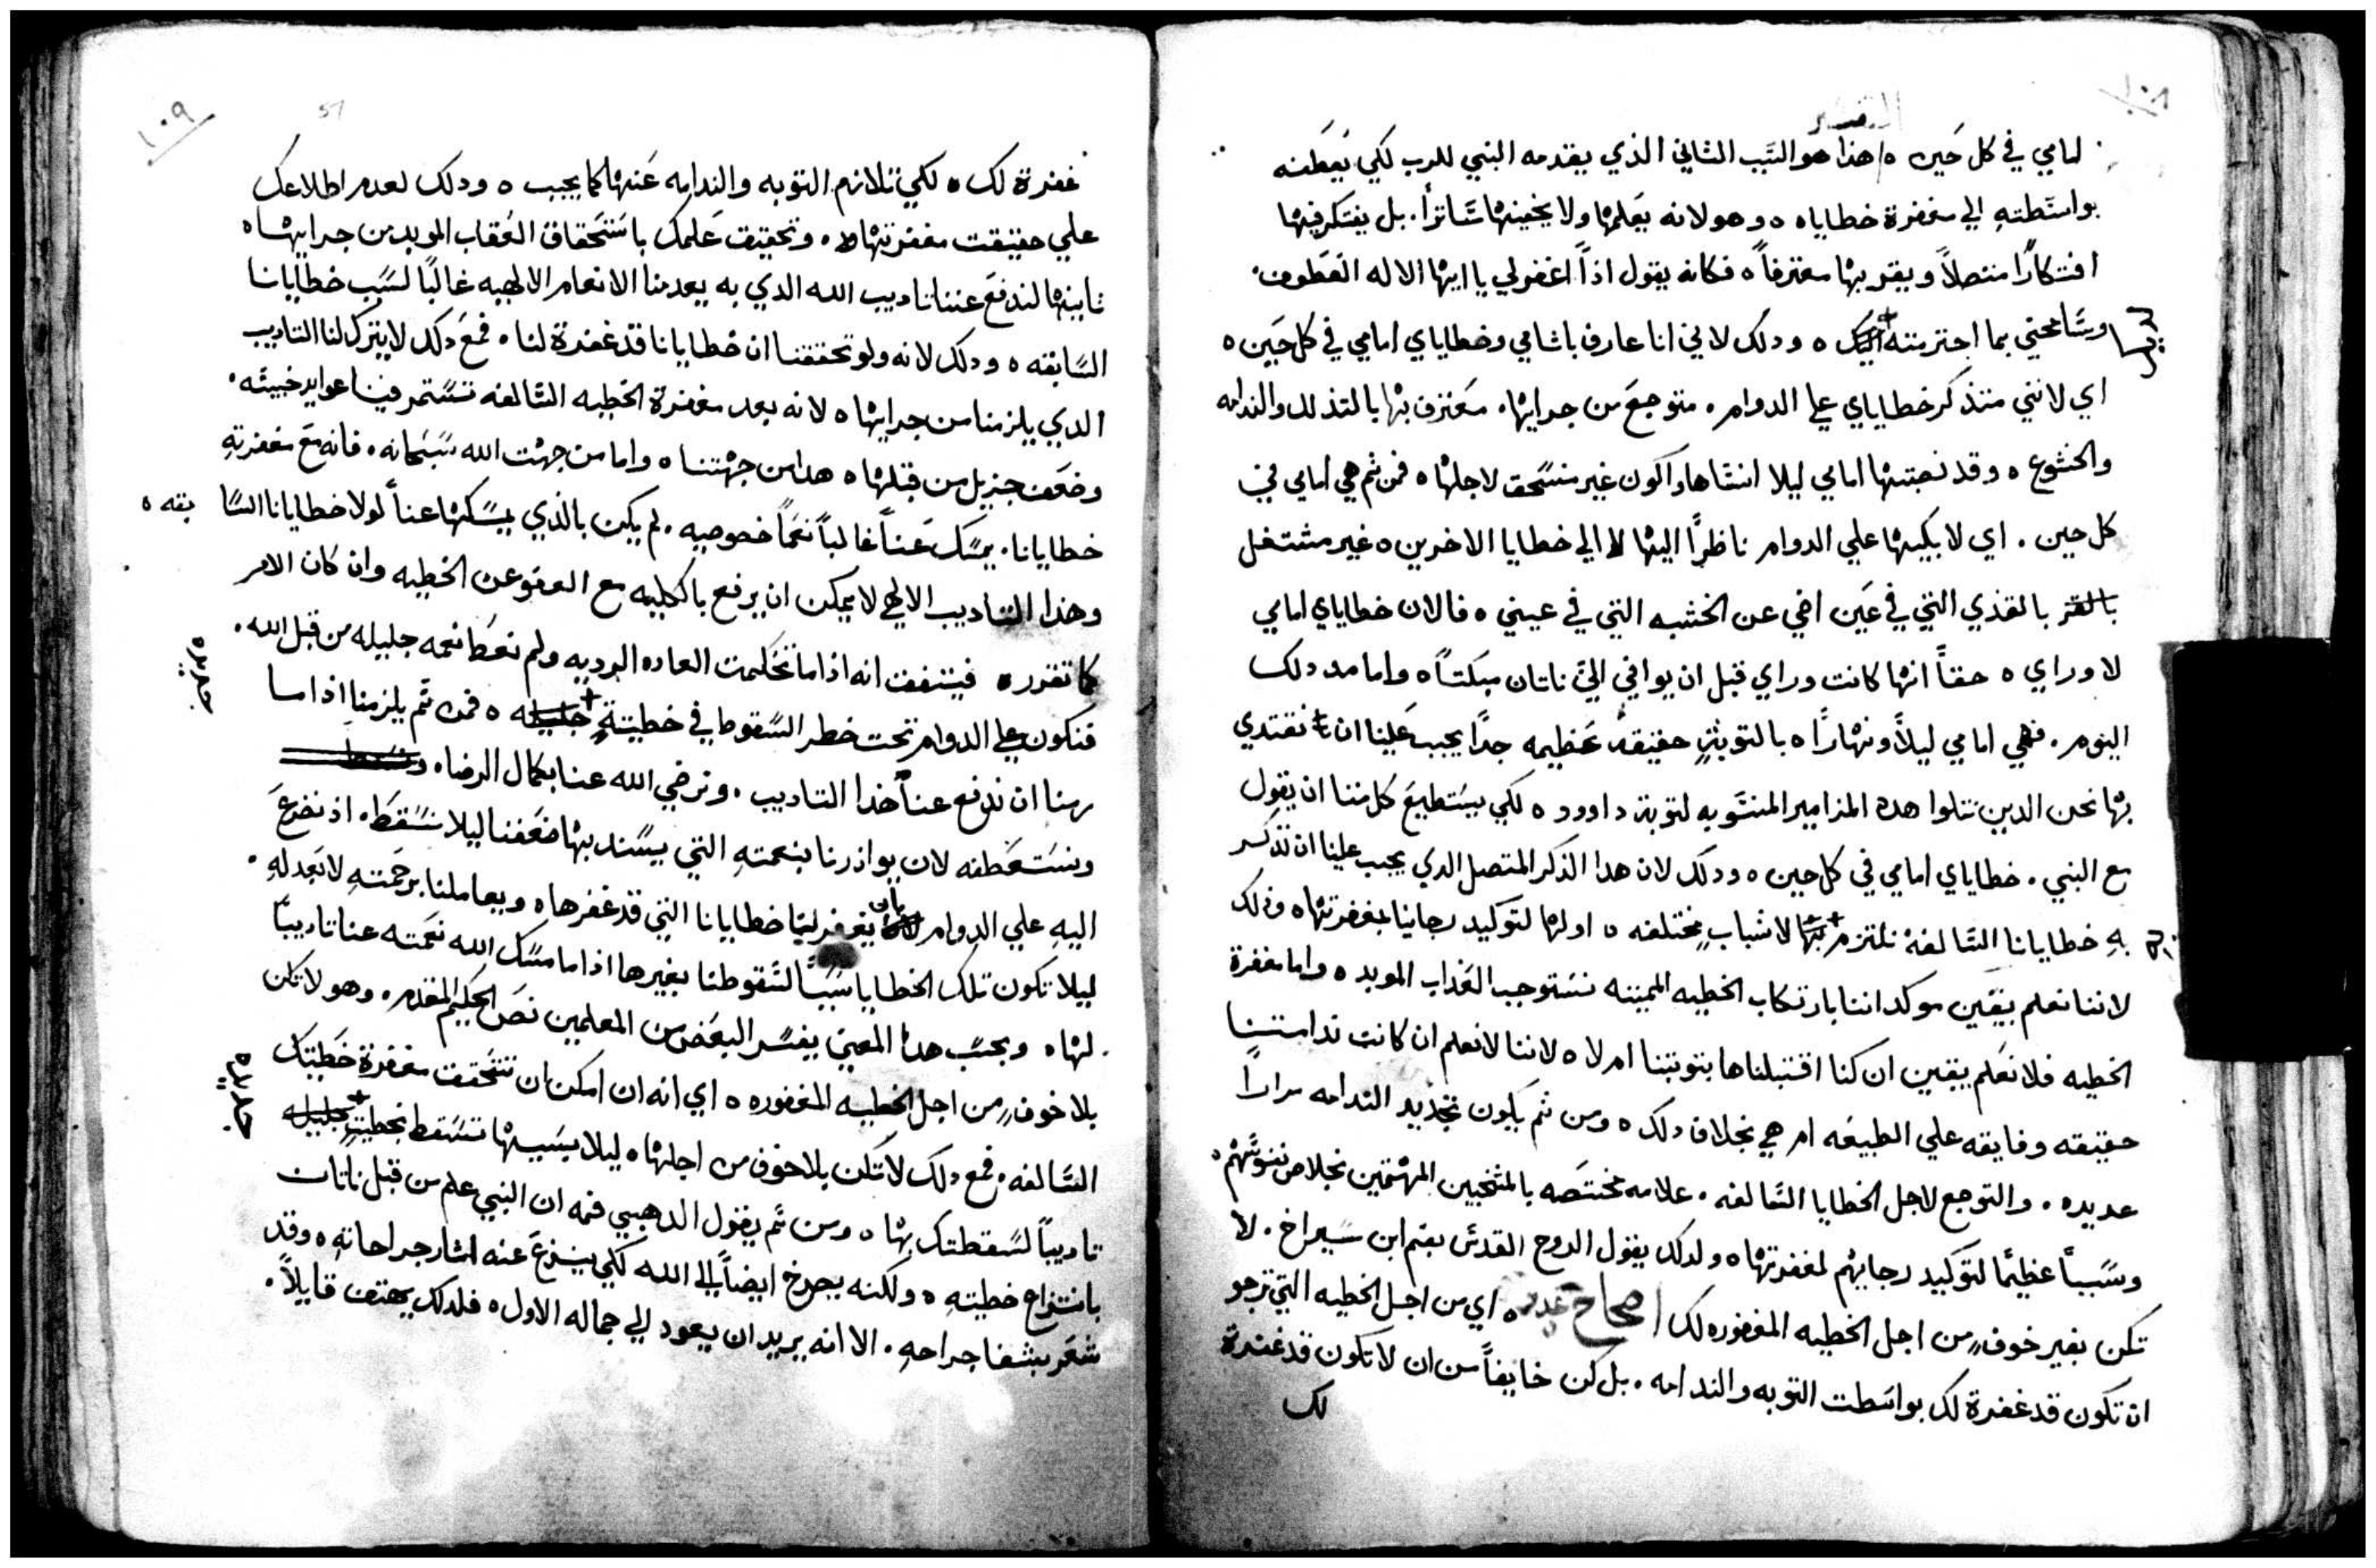 ١٠٨
التفسير
امامي في كل حين ه هذا هو السَبب الثاني الذي يقدمه النبي للرب لكي يَعطفه
بواسَطتهِ الي مغفرة خطاياه ه وهو لانه يَعلمها ولا يخفيها سَاترًا. بل يفتكر فيها
افتكارًا متصلاً ويقر بها معترفاً ه فكانه يقول اذاً اغفر لي يا ايها الاله العَطوف.
وسَامحني بما اجترمته اليك ه ودلك لاني انا عارف باثامي وخطاياي امامي في كل حَين ه
اي لانني متذكر خطاياي علي الدوام. متوجعَ من جرايها. مَعترف بها بالتذلل والندامه
والخشوع ه وقد نصبتها امامي ليلا انسَاها واكون غير منسَحق لاجلها ه فمن ثم هي امامي في
كل حين. اي لابكيها علي الدوام ناظرًا اليها لا الي خطايا الاخرين ه غير مشتغل
بالقذي التي في عَين اخي عن الخشبه التي في عيني ه فالان خطاياي امامي
لا وراي ه حقاً انها كانت وراي قبل ان يوافي اليَّ ناتان مبكتاً ه واما مد دلك
اليوم. فهي امامي ليلاً ونهارًا ه بالتوبةٍ حقيقه عَظيمه جدًا يجب عَلينا ان نقتدي
بها نحن الدين نتلوا هده المزامير المنسَوبه لتوبة داوود ه لكي يسَتطيعَ كل مننا ان يقول
مع النبي. خطاياي امامي في كل حين ه ودلك لان هدا الذكر المتصل الدي يجب علينا ان نذكر
بهِ خطايانا السَالفه نلتزم بها لاسَبابٍ مختلفه ه اولها لتوكيد رجاينا بمغفرتها ه وذلك
لاننا نعلم بيقَين موكد اننا بارتكاب الخطيه المميته نسَتوجب العَذاب الموبد ه واما مغفرة
الخطيه فلا نعَلم بيقين ان كنا اقتبلناها بتوبتنا ام لا ه لاننا لا نعلم ان كانت ندامتنا
حقيقه وفايقه علي الطبيعَه ام هي بخلاف دلك ه ومن ثم يكون تجديد الندامه مرارًا
عديده. والتوجع لاجل الخطايا السَالفه. علامه مختصَه بالمنتخبين المهتمين بخلاص نفوسَهم ه
وسَبباً عظيمًا لتوكيد رجايهم لمغفرتها ه ولدلك يقول الروح القدسَ بفم ابن سَيراخ. لا
تكن بغير خوفٍ من اجل الخطيه المغفوره لك اصحاح عدد ه اي من اجل الخطيه التي ترجو
ان تكون قد غفرة لك بواسَطت التوبه والندامه. بل كن خايفاً من ان لا تكون قد غفرة
لك
١٠٩
51
غفرة لك ه لكي تلازم التوبه والندامه عَنها كما يجب ه ودلك لعدم اطلاعك
علي حقيقت مغفرتها ه وتحقيق عَلمك باسَتحقاق العُقاب الموبد من جرايها ه
ثانيها لندفعَ عننا تاديب الله الدي به يعدمنا الانعام الالهيه غالبًا لسَبب خطايانا
السَابقه ه ودلك لانه ولو تحققنا ان خطايانا قد غفرة لنا ه فمعَ دلك لا يترك لنا التاديب
الدي يلزمنا من جرايها ه لانه بعد مغفرة الخطيه السَالفه تسَتمر فينا عوايد خبيثَه.
وضعَف جزيل من قبلها ه هدا من جهتنا ه واما من جهت الله سَبحانه. فانه معَ مغفرتهِ
خطايانا. يمسَك عَنا غالباً نعَماً خصوصيه. لم يكن بالذي يمسَكها عنا لولا خطايانا السَا بقه ه
وهذا التاديب الالهي لا يمكن ان يرفع بالكليه مع العفو عن الخطيه وان كان الامر
كما تقرر ه فيتفق انه اذا ما تحَكمت العاده الرديه ولم نعَطا نعمه جليله من قبل الله.
فنكون علي الدوام تحت خطر السَقوط في خطيتةٍ جليله ه فمن ثَم يلزمنا اذا ما
جديده
رمنا ان ندفع عناَ هذا التاديب. ونرضي الله عنا بكمال الرضا ه
ونستَعَطفه لان يوازرنا بنعمتهِ التي يسَند بها ضعَفنا ليلا نسَقط. اذ نضرعَ
اليهِ علي الدوام بان يغفر لنا خطايانا التي قد غفرها ه ويعاملنا برحمَتهِ لا بعَدلهِ.
ليلا تكون تلك الخطايا سَبباً لسَقوطنا بغيرها اذا ما مسَك الله نعَمته عنا تاديباً
لها ه وبحسَب هدا المعني يفسَر البعَض من المعلمين نصَ الحكيم المقدم. وهو لا تكن
بلا خوفٍ من اجل الخطيه المغفوره ه اي انه ان امكن ان تتحَقق مغفرة خطَيتك
السَالفه. فمع دلك لا تكن بلا خوف من اجلها ه ليلا بسَببها تسَقط بخطيتةٍ جليله
جديده
تاديباً لسَقطتك بها ه ومن ثَم يقول الدهبي فمه ان النبي علم من قبل ناتان
بانتزاع خطيتهِ ه ولكنه يصرخ ايضاً الي الله لكي ينزعَ عنه اثار جراحاتهِ ه وقد
شعَر بشفا جراحهِ. الا انه يريد ان يعود الي جماله الاول ه فلدلك يهتف قايلاً.